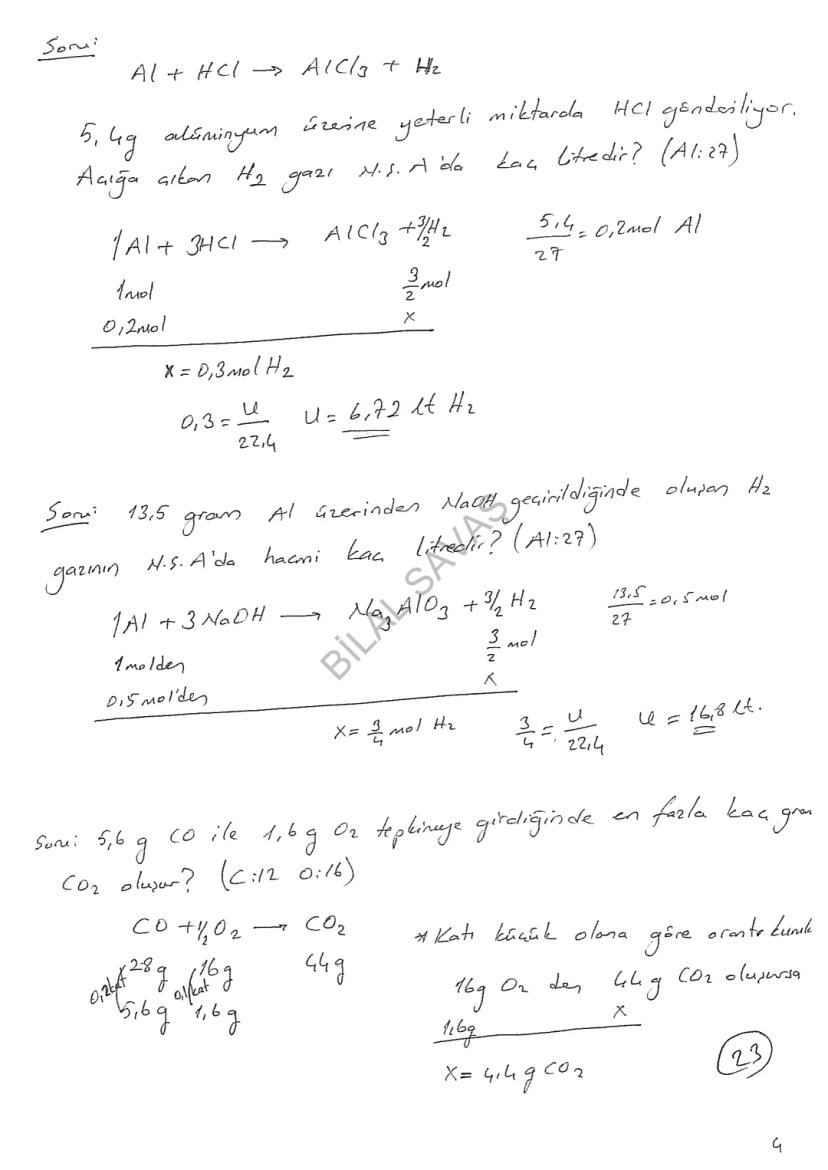 Soru:
Al + HCl → AlCl₃ + H₂
5,4g alüminyum üzerine yeterli miktarda HCl gönderiliyor.
Açığa çıkan H₂ gazı N.Ş.A'da kaç litredir? (Al:27)
1Al + 3HCl → AlCl₃ + 3/2 H₂
5,4/27 = 0,2mol Al
1mol 3/2 mol
0,2mol x
x = 0,3mol H₂
0,3 = U/22,4 U = 6,72 lt H₂
Soru: 13,5 gram Al üzerinden NaOH geçirildiğinde oluşan H₂
gazının N.Ş.A'da hacmi kaç litredir? (Al:27)
1Al + 3NaOH → Na₃AlO₃ + 3/2 H₂
13,5/27 = 0,5mol
1molden 3/2 mol
0,5mol'den x
x = 3/4 mol H₂ 3/4 = U/22,4 U = 16,8 lt.
BİLAL SAVAŞ
Soru: 5,6 g CO ile 1,6 g O₂ tepkimeye girdiğinde en fazla kaç gram
CO₂ oluşur? (C:12 O:16)
CO + 1/2 O₂ → CO₂
28g 16g 44g
0,2kat 0,1kat
5,6g 1,6g
* Katı küçük olana göre orantı kurulur
16g O₂ den 44g CO₂ oluşursa
1,6g x
x = 4,4 g CO₂
23
4